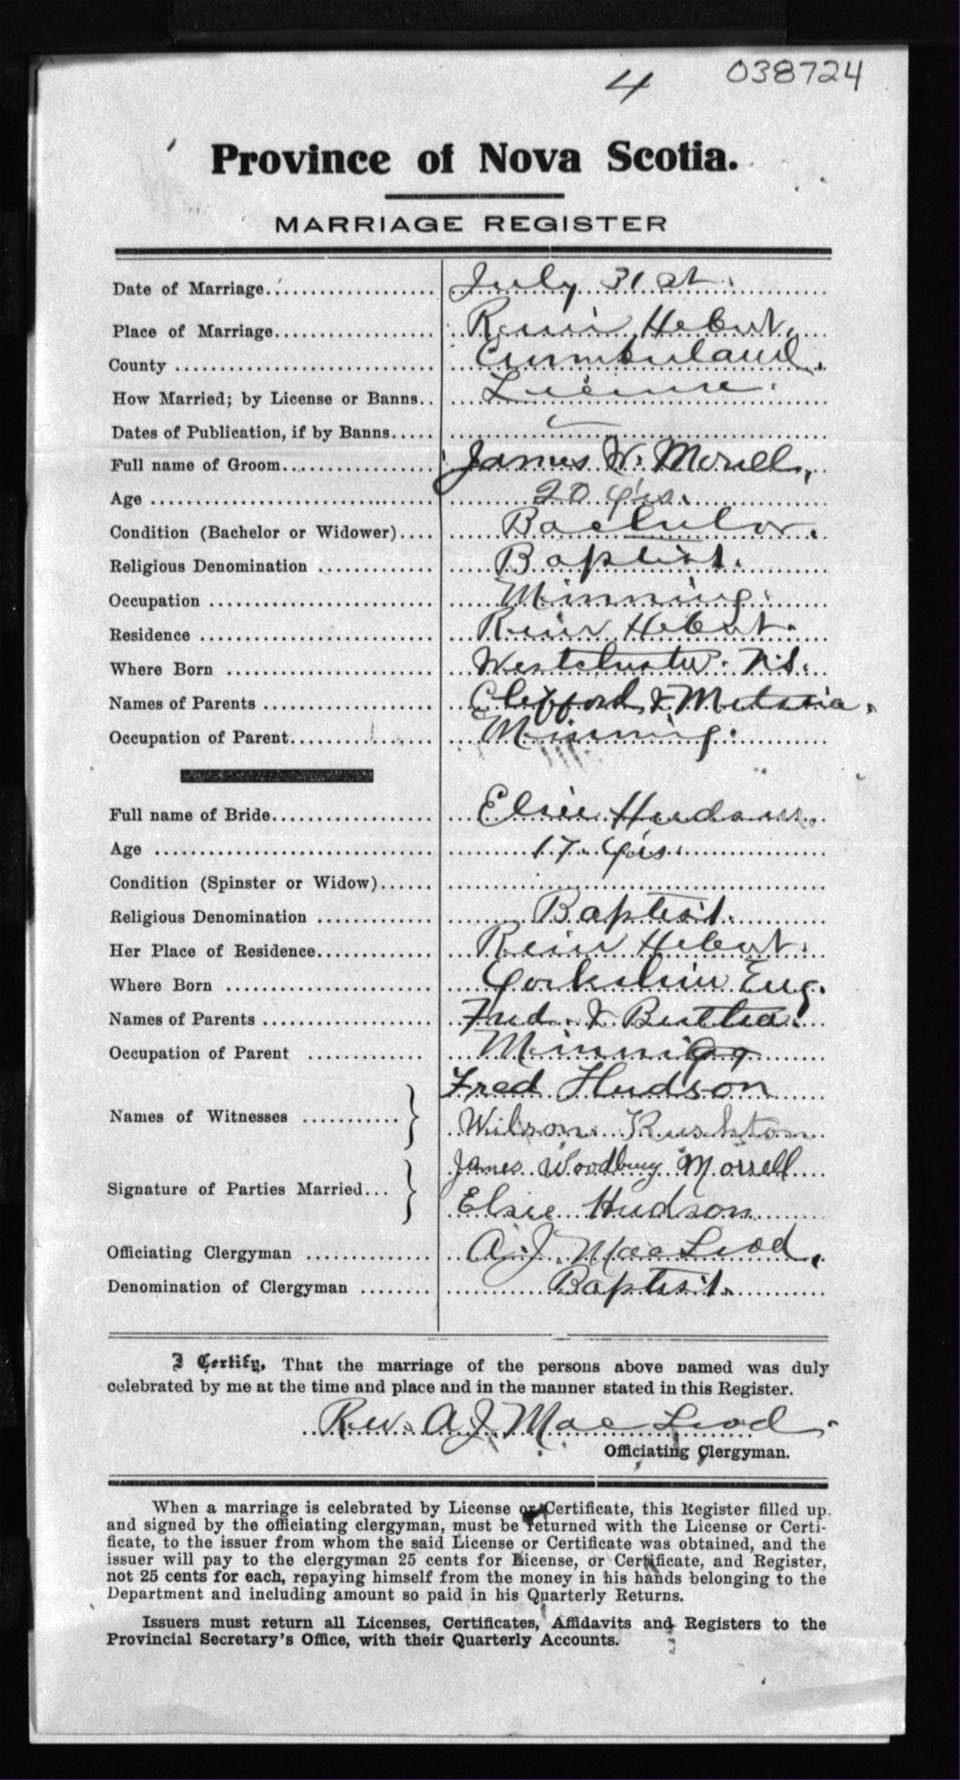 4 038724
Province of Nova Scotia.
MARRIAGE REGISTER
Date of Marriage July 31st.
Place of Marriage River Hebert.
County Cumberland.
How Married; by License or Banns License.
Dates of Publication, if by Banns
Full name of Groom James W. Morell,
Age 20 Yrs.
Condition (Bachelor or Widower) Bachelor.
Religious Denomination Baptist.
Occupation Minning.
Residence River Hebert.
Where Born Westchester. N.S.
Names of Parents Clifford &
Occupation of Parent Minning.
Full name of Bride Elsie Hudson.
Age 17 Yrs.
Condition (Spinster or Widow)
Religious Denomination Baptist.
Her Place of Residence River Hebert.
Where Born Yorkshire Eng.
Names of Parents Fred. & Bertha.
Occupation of Parent Minning
Names of Witnesses Fred Hudson
Wilson Rushton
Signature of Parties Married James Woodbury Morrell
Elsie Hudson
Officiating Clergyman A. J. MacLeod,
Denomination of Clergyman Baptist.
I Certify, That the marriage of the persons above named was duly
celebrated by me at the time and place and in the manner stated in this Register.
Rev. A J. MacLeod.
Officiating Clergyman.
When a marriage is celebrated by License or Certificate, this Register filled up
and signed by the officiating clergyman, must be returned with the License or Certi-
ficate, to the issuer from whom the said License or Certificate was obtained, and the
issuer will pay to the clergyman 25 cents for License, or Certificate, and Register,
not 25 cents for each, repaying himself from the money in his hands belonging to the
Department and including amount so paid in his Quarterly Returns.
Issuers must return all Licenses, Certificates, Affidavits and Registers to the
Provincial Secretary's Office, with their Quarterly Accounts.